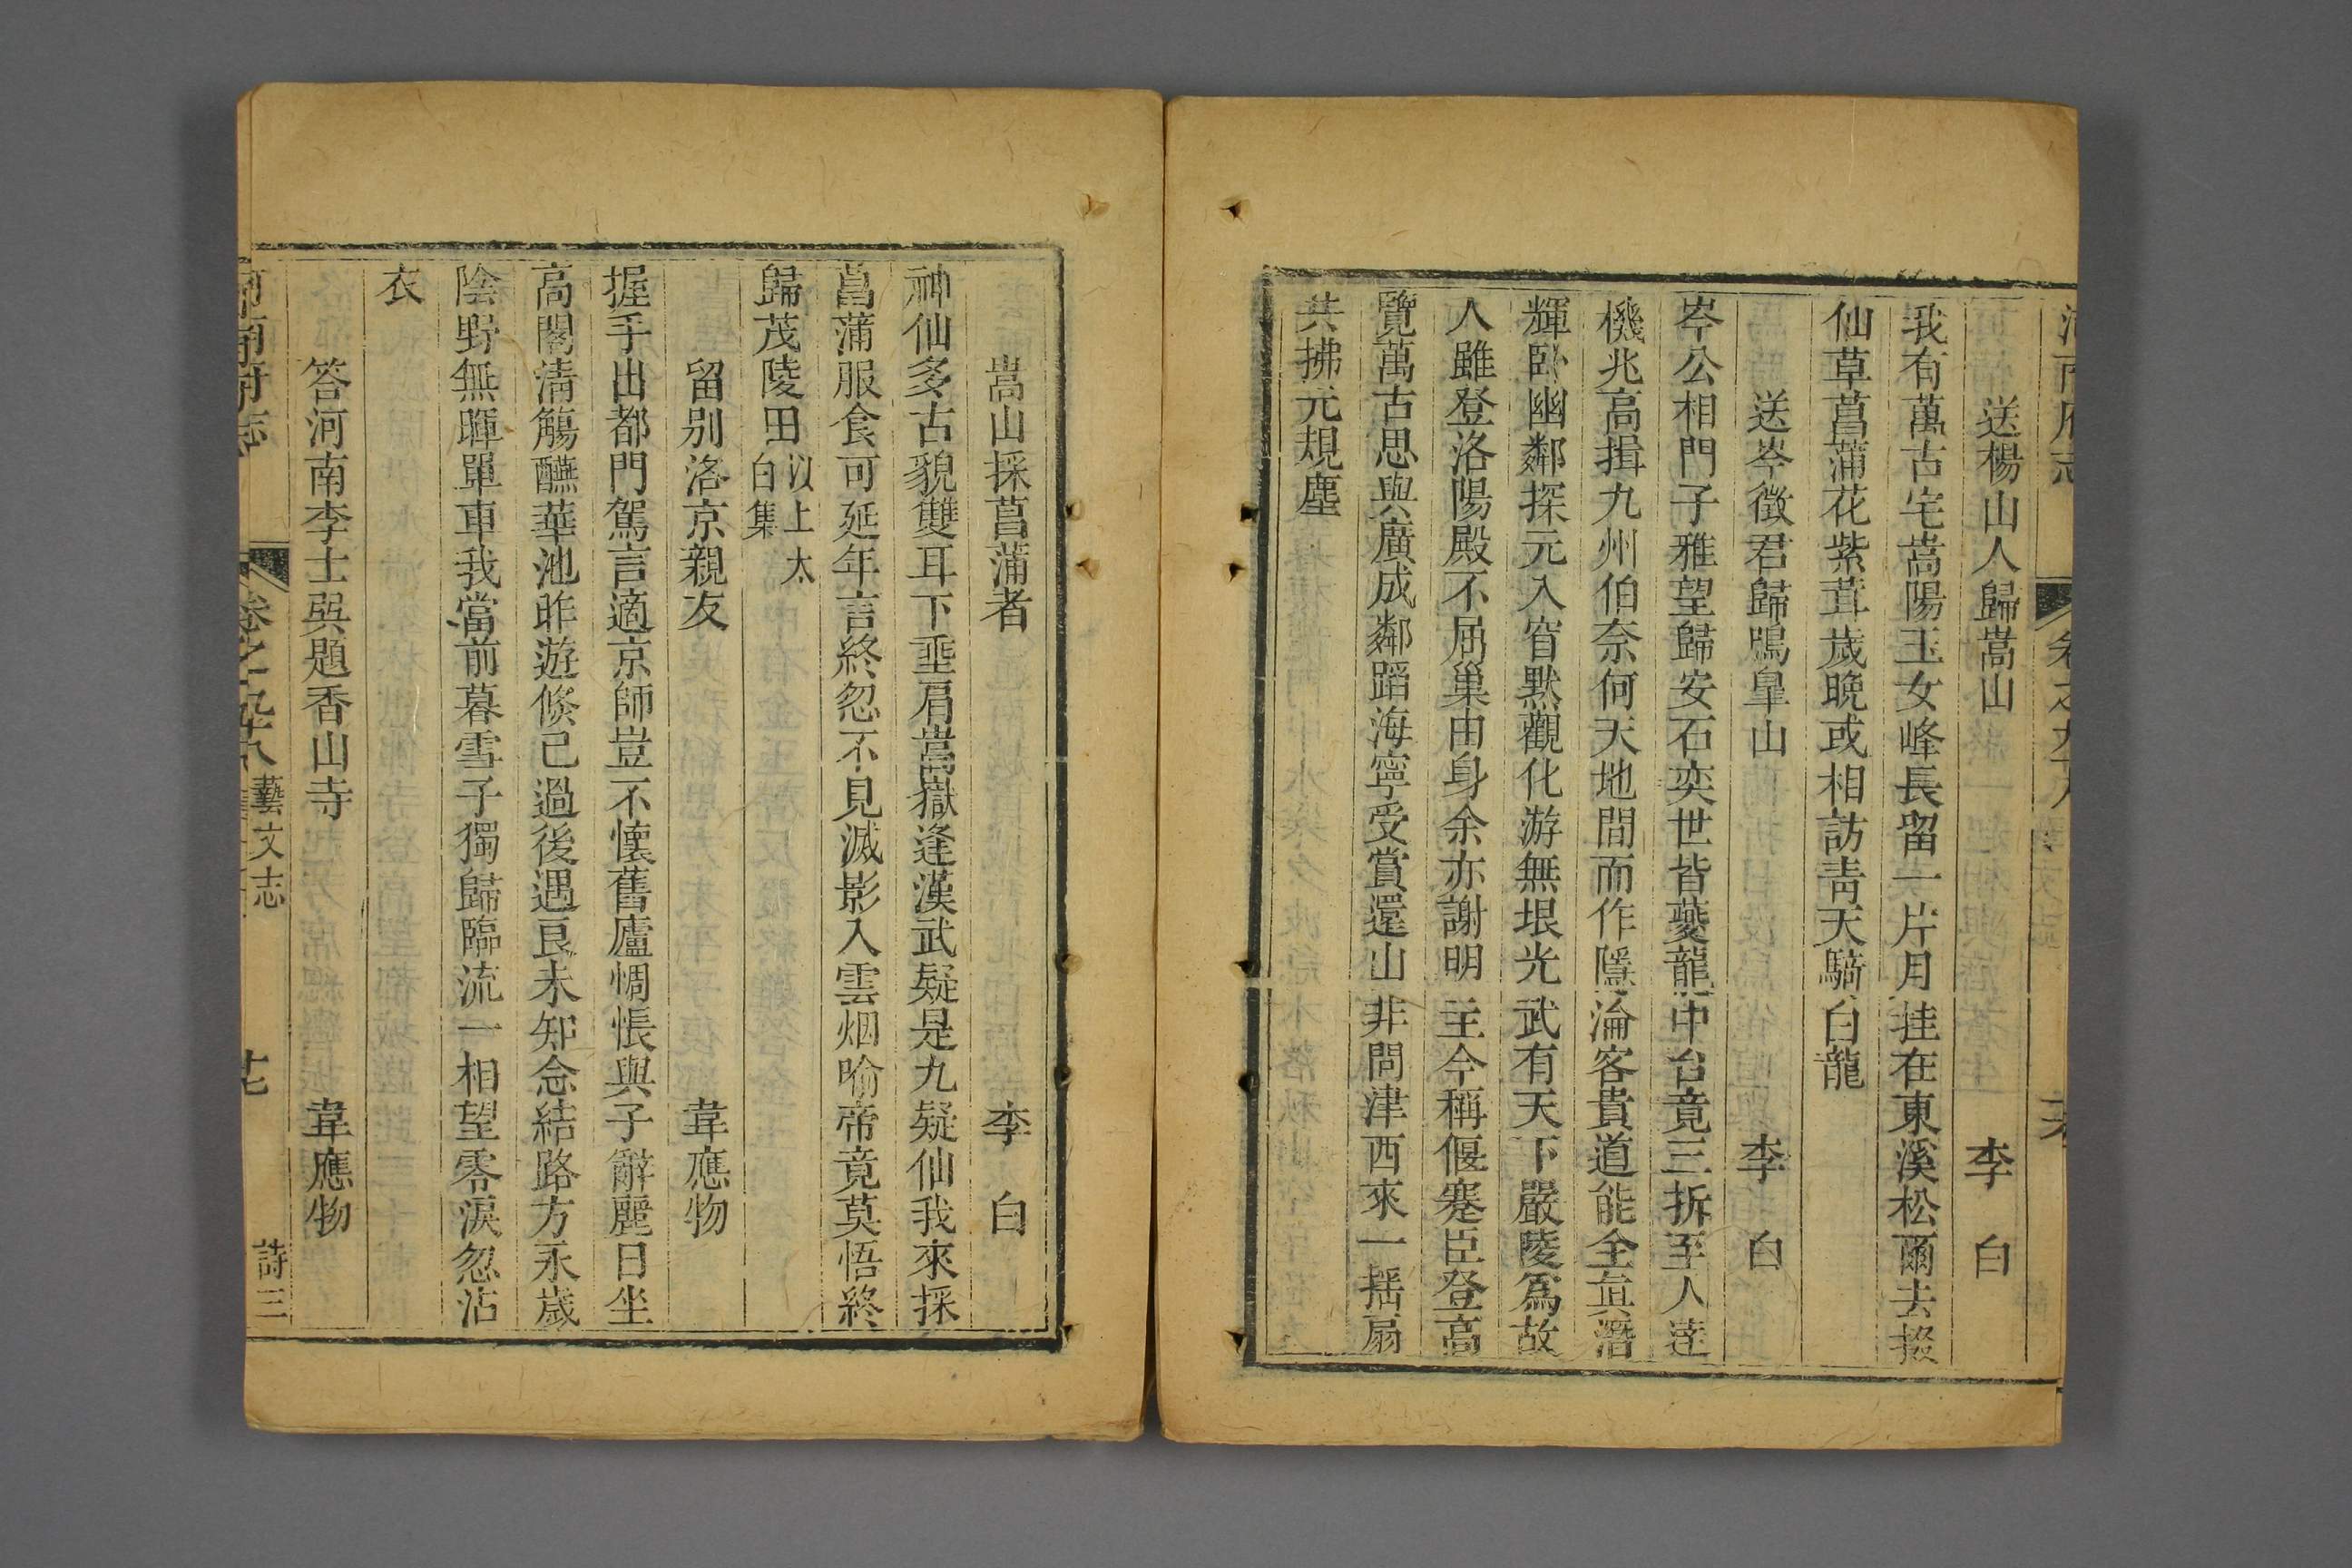 河南府志 卷之九十八
送楊山人歸嵩山 李白
我有萬古宅嵩陽玉女峰長留一片月挂在東溪松爾去掇
仙草菖蒲花紫茸歲晚或相訪青天騎白龍
送岑徵君歸鳴皐山 李白
岑公相門子雅望歸安石奕世皆夔龍中台竟三拆至人達
機兆高揖九州伯奈何天地間而作隱淪客貴道能全眞潛
輝卧幽鄰探元入窅默觀化游無垠光武有天下嚴陵爲故
人雖登洛陽殿不屈巢由身余亦謝明主今稱偃蹇臣登高
覽萬古思與廣成鄰蹈海寧受賞還山非問津西來一揺扇
共拂元規塵
嵩山採菖蒲者 李白
神仙多古貌雙耳下垂肩嵩嶽逢漢武疑是九疑仙我來採
菖蒲服食可延年言終忽不見滅影入雲烟喻帝竟莫悟終
歸茂陵田以上太白集
留别洛京親友 韋應物
握手出都門駕言適京師豈不懷舊廬惆悵與子辭麗日坐
高閣淸觴醼華池昨遊倐已過後遇良未知念結路方永歲
陰野無暉單車我當前暮雪子獨歸臨流一相望零淚忽沾
衣
答河南李士巽題香山寺 韋應物
河南府志 卷之九十八 藝文志 詩三